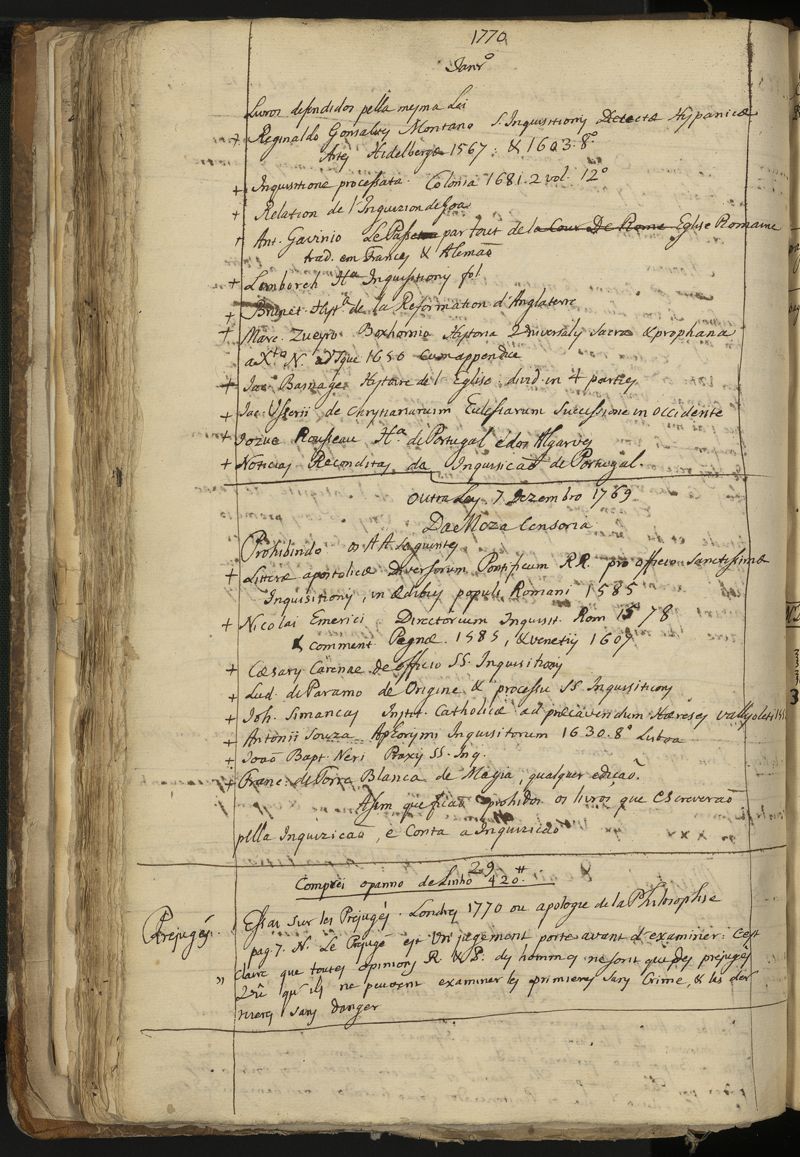 1770
Janr.º
Livros defendidos pella mesma Lei
+ Reginaldo Gonsalvez Montano S. Inquisitionis Detectæ Hispanicæ
Artes Hidelbergæ 1567: & 1603. 8º
+ Inquisitione processata. Colonia 1681. 2 vol. 12º
+ Relation de l'Inquizion de Goa
+ Ant. Gavinio Le Passe par tout de la Cour De Rome Eglise Romaine
trad. em Frances & Alemaõ
+ Lemborch Hª Inquisitionis fol
+ Brunet Hystª de la Reformation d'Anglaterre
+ Marc. Zueyro Boxhornio Hystoria Universalis Sacra & prophana
a Xto N. adusque 1650 cum appendice
+ Jac. Basnage Hystoire de l'Eglise: divid. in 4 parties
+ Jac. Usserii de Chrystianarum Eclesiarum Successione in occidente
+ Jozue Rousseau Hª de Portugal e dos Algarves
+ Noticias Reconditas da Inquisicaõ de Portugal.
Outra Ley 7 Dezembro 1769
Da Meza Censoria
Prohibindo os AA seguintes
+ Litteræ apostolicæ Diversorum Pontificum RR. pro officio Sanctissimæ
Inquisitionis, in ædibus populi Romani 1585
+ Nicolai Emerici Directorium Inquisit. Rom 1578
& comment Pegnæ. 1585, & venetiis 1607
+ Cæsarys Carenae de officio SS. Inquisitionis
+ Lud. de Paramo de Origine & processu SS Inquisitionis
+ Joh. Simancas Instit. Catholicæ ad præcavendum Hæreses vallysoleti 15
+ Antonii Souza Aphorysmi Inquisitorum 1630. 8º Lisboa
+ Joaõ Bapt. Neri Praxis SS. Inq.
+ Franc. de Torre Blanca de Magia, qualquer ediçaõ.
Assim que ficaõ prohidos os livros que escreveraõ
pella Inquizicaõ, e Conta a Inquizicaõ
29
Comprei o panno de Linho 420.
Prejugés. Essai sur les Prejugés. Londres 1770 ou apologie de la Philosophie
pag. 7. N. Le Prejugé est un jugement porte avant d'examiner: C'est
" claire que toutes opinions R & P. des hommes ne sont que des prejugés
Vû qu'ils ne peuvent examiner les premieres sans Crime, & les der
nieres sans danger